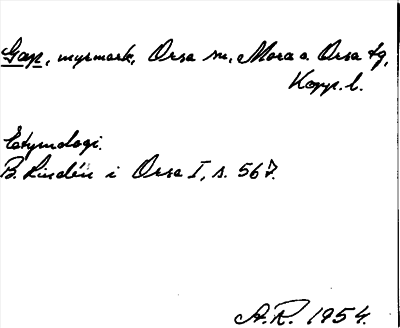 Gap, myrmark, Orsa sn, Mora o. Orsa tg,
Kopp. l.
Etymologi.
B. Lindén i Orsa I, s. 567.
A.R. 1954.